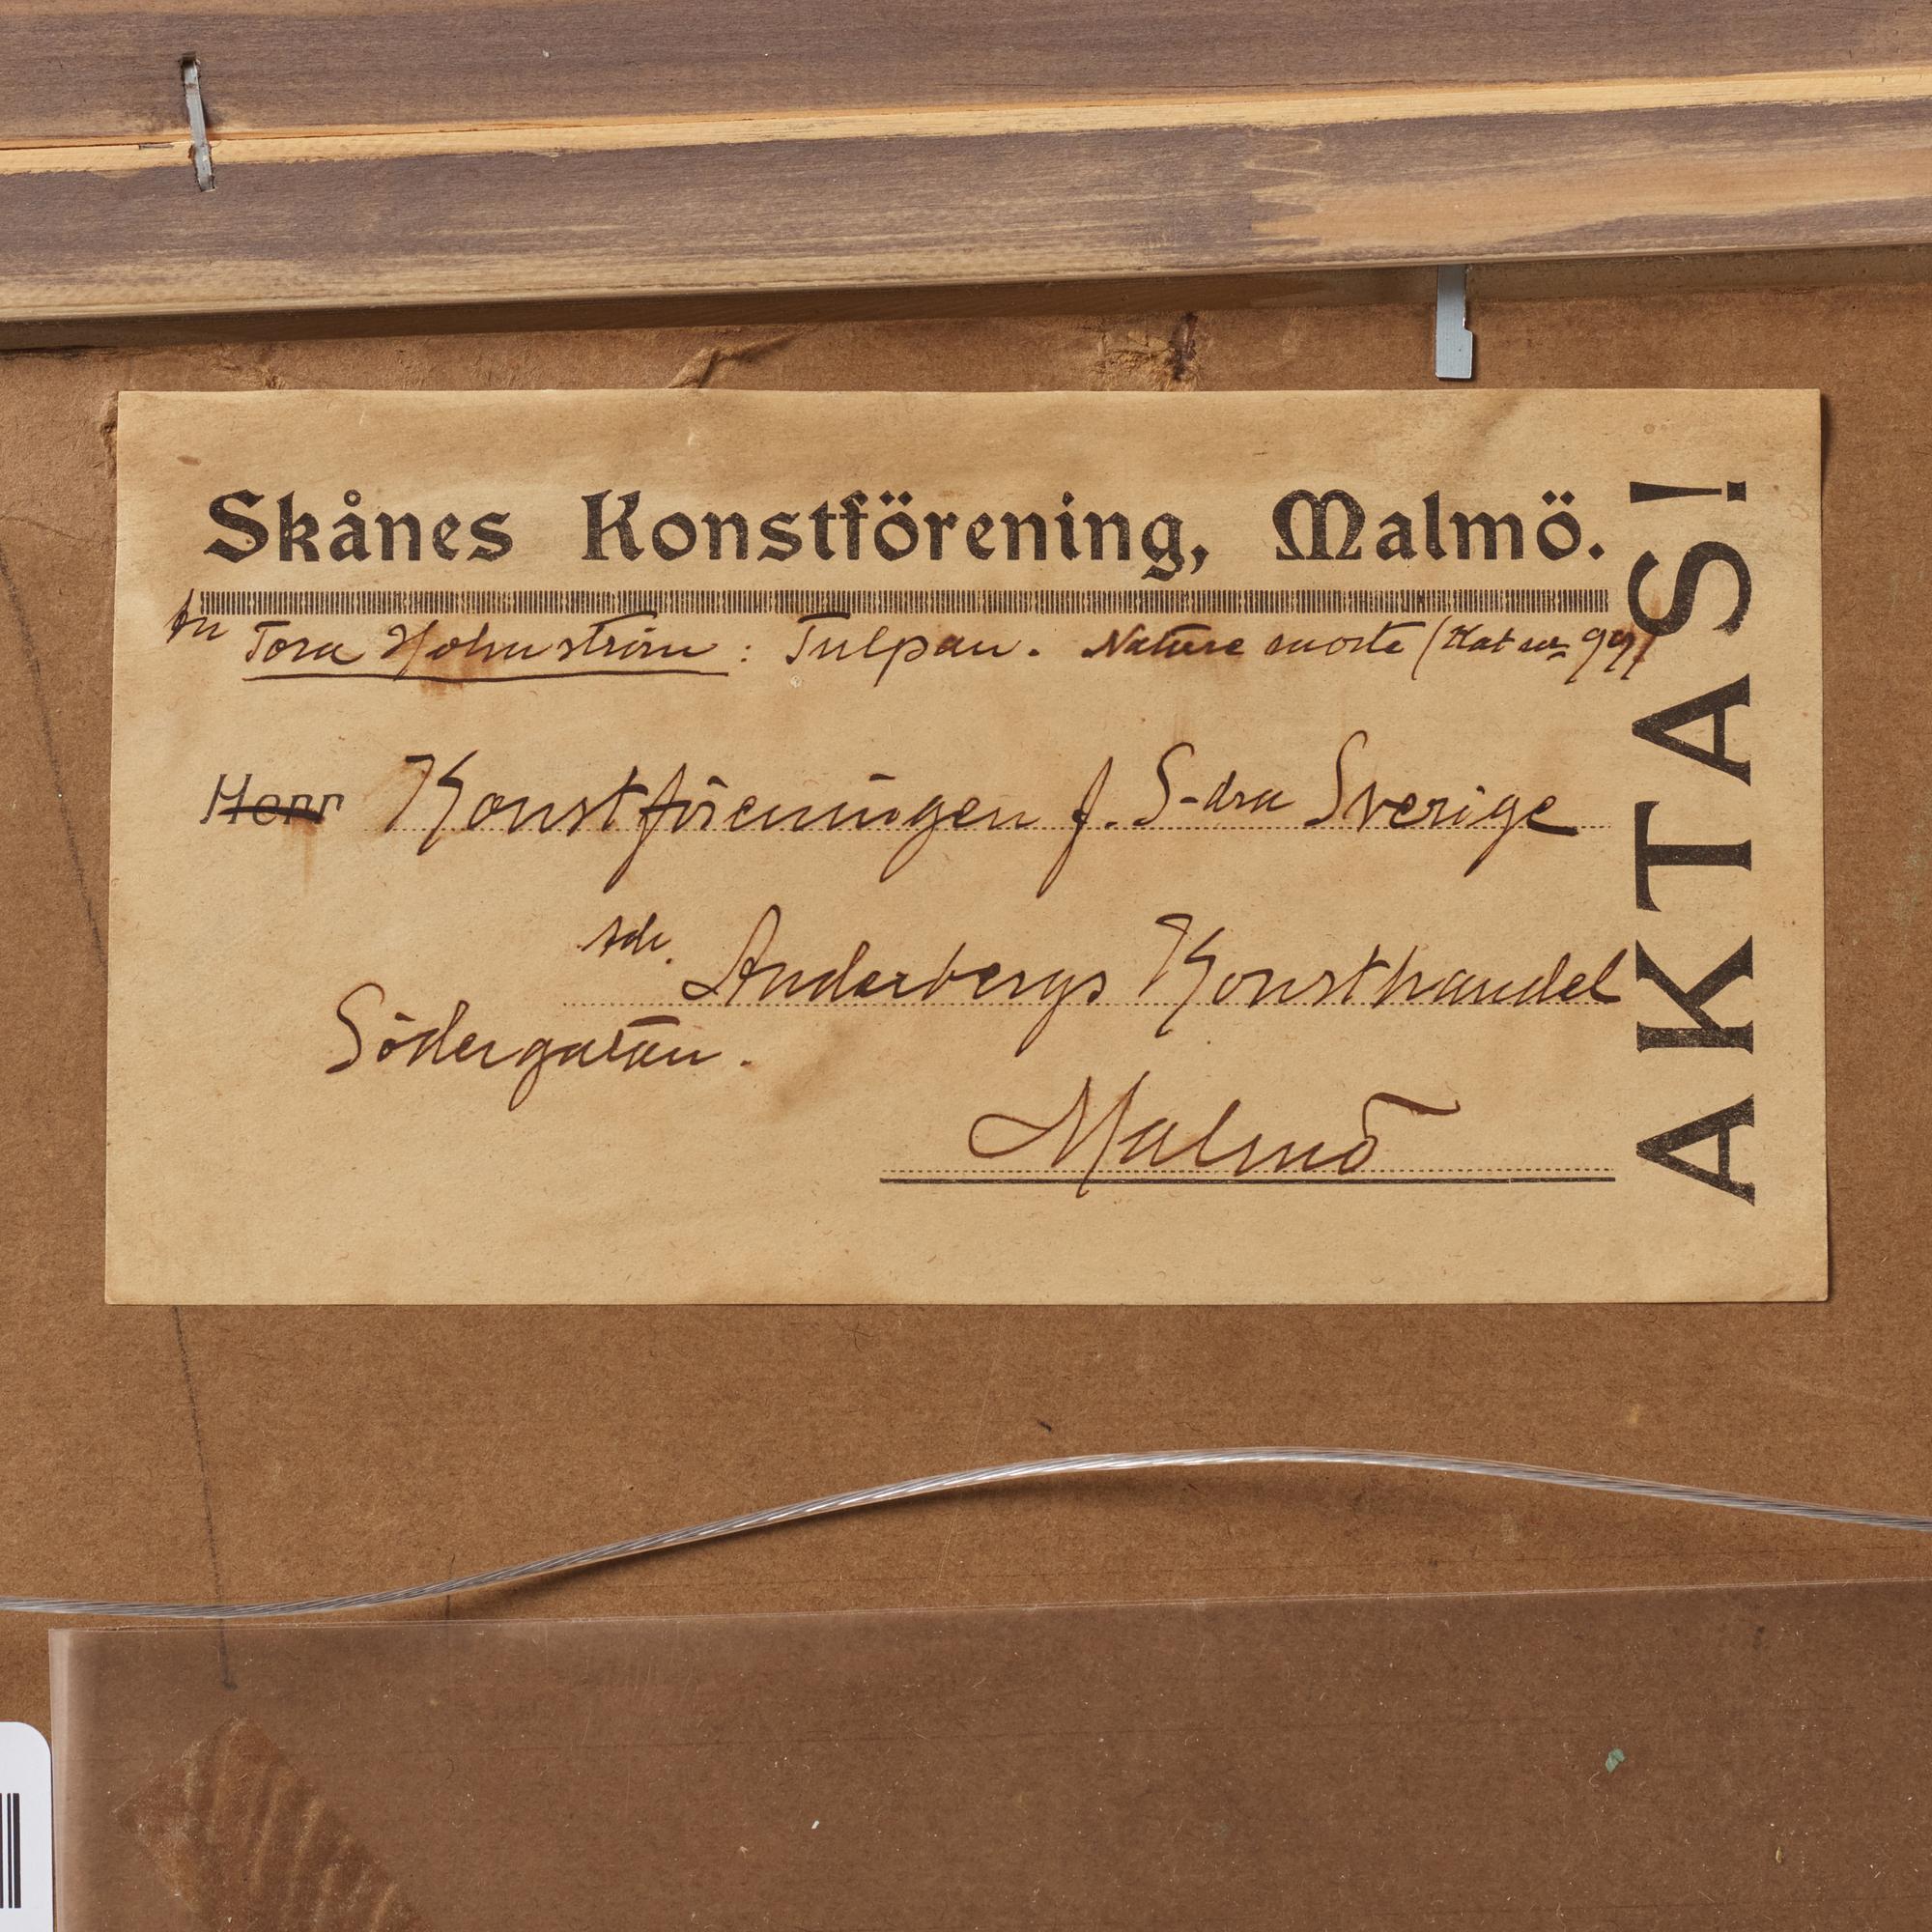 Skånes Konstförening, Malmö.
Av Tora Holmström: Tulpan. Nature morte (Kat nr 99)
Herr Konstföreningen f. S-dra Sverige
adr. Anderbergs Konsthandel
Södergatan.
Malmö
AKTAS!